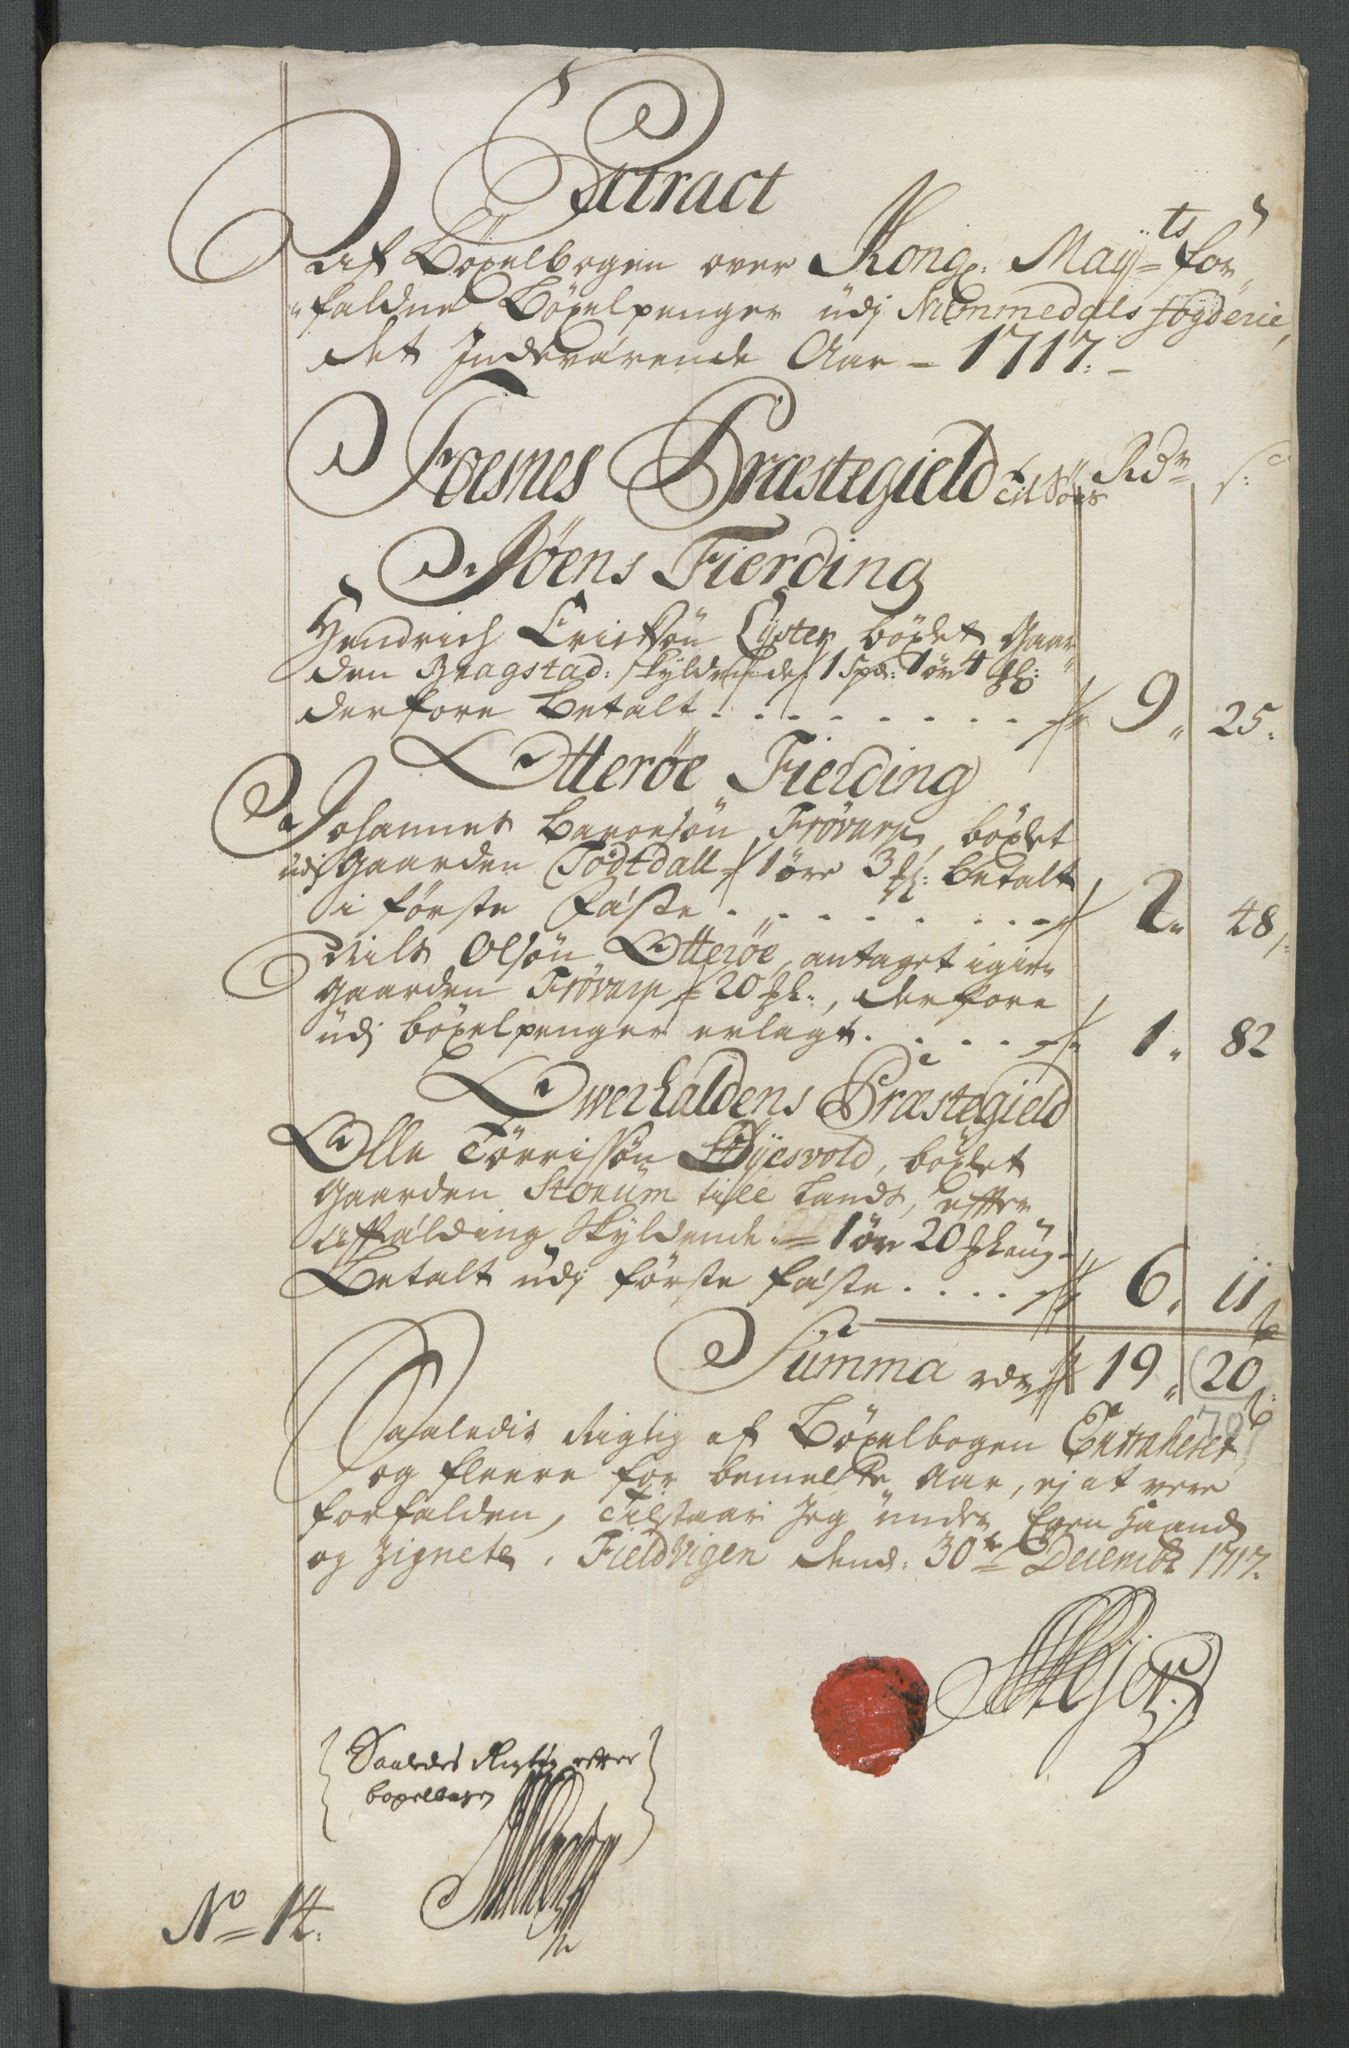 Extract
Af Böxelbogen over Kong: May:ts for
faldne Böxelpenger udj Nummedals fogderie,
det Indeværende Aar - 1717. -
Foesnes Præstegield Rdr s:
Jöens Fierding
Hendrich Erichsön Lyster, böxlet Gaar
den Bragstad: skyldende 1 Spd: 1 ör 4 Mkl:
derfore Betalt . . . . . . . . . 9 „ 25:
Otterøe Fierding
Johannes Baroesön Frövarp, böxlet
udj Gaarden Födtdall 1 öre 3 Mkl: betalt
i förste fäste . . . . . . . . 2 „ 48
Nils Olsön Otterøe, antaget igien
gaarden Frövarp 20 Mkl:, derfore
udj böxelpenger erlagt . . . . . 1 „ 82
Owerhaldens Præstegield
Olle Törrissön, böxlet
Gaarden Storüm till Landz, efter
Affälding skyldende - 1 ör 20 Mklaug
Betalt udj förste fäste . . . . 6 „ 11
Summa rdr 19 „ 20
70
Saaledis Rigtig af Böxelbogen Extraheret,
og fleere for bemelte Aar, ej at vere
forfalden, Tilstaar Jeg under Egen Haand
og Zignete, Fieldvigen dend: 30te Decembr 1717.
Saaledes Rigtig efter
boxelbogen
No 14.